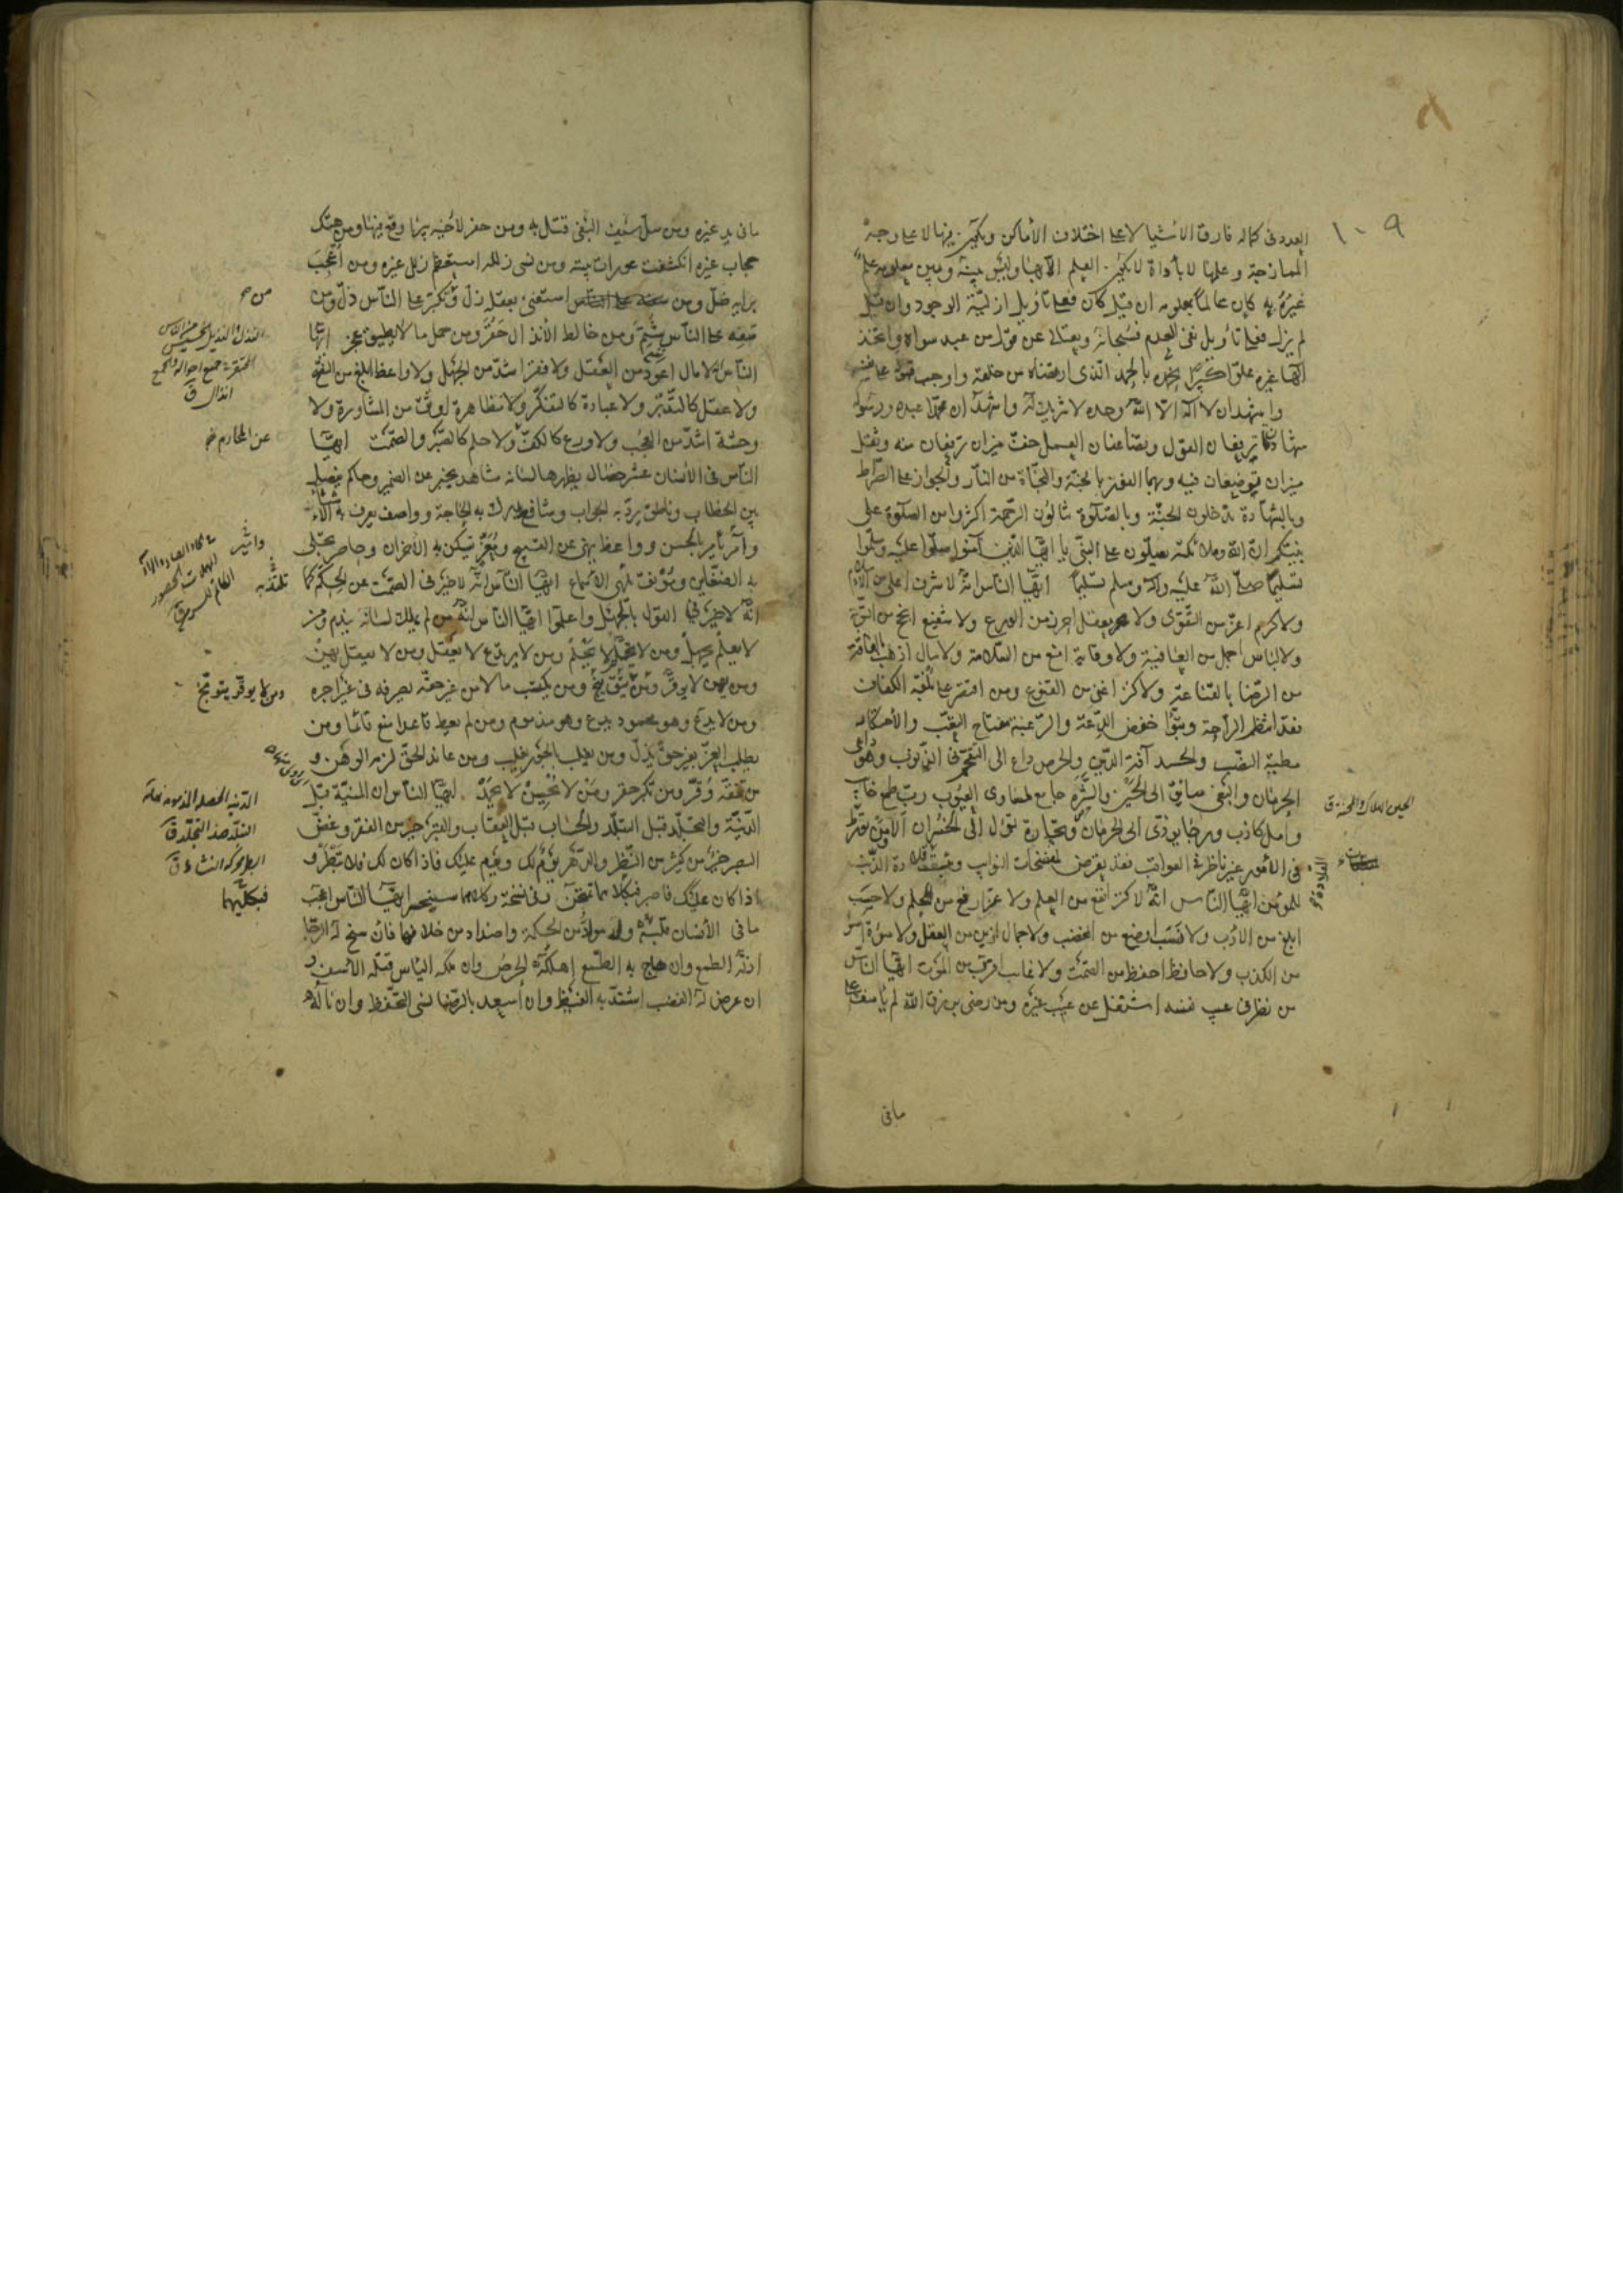 ١٠٩
العدد فى كماله فارق الاشيا لا على اختلاف الأماكن ويكون فيها لا على وجه
الممازجة وعلمها لا بأداة لا يكون العلم الا بها وليس بينه وبين معلومه علم
غيره به كان عالماً بمعلومه ان قيل كان فعلى تأويل ازلية الوجود وان قيل
لم يزل فعلى تأويل نفى العدم فسبحانه وتعالى عن قول من عبد سواه واتخذ
الهاً غيره علوّاً كبيراً نحمده بالحمد الذى ارتضاه من خلقه واوجب قبوله على نفسه
واشهد ان لا اله الا الله وحده لا شريك له واشهد ان محمداً عبده ورسوله
شهادتان ترفعان القول وتضاعفان العمل خفّ ميزان ترفعان منه وثقل
ميزان توضعان فيه وبهما الفوز بالجنّة والنجاة من النار والجواز على الصراط
وبالشهادة تدخلون الجنّة وبالصلوة تنالون الرحمة اكثروا من الصلوة على
نبيّكم انّ الله وملائكته يصلّون على النبى يا ايّها الذين آمنوا صلّوا عليه وسلّموا
تسليماً صلى الله عليه وآله وسلم تسليماً ايّها الناس انه لا شرف اعلى من الاسلام
ولا كرم اعزّ من التقوى ولا معقل احرز من الورع ولا شفيع انجح من التوبة
ولا لباس اجمل من العافية ولا وقاية امنع من السلامة ولا مال اذهب بالفاقة
من الرضا بالقناعة ولا كنز اغنى من القنوع ومن اقتصر على بلغة الكفاف
فقد انتظم الراحة وتبوّأ خفض الدعة والرغبة مفتاح التعب والاحتكار
مطيّة النصب والحسد آفة الدين والحرص داع الى التقحّم فى الذنوب وهو داعى
الحرمان والبغى سائق الى الحين والشره جامع لمساوى العيوب ربّ طمع خائب
وامل كاذب ورجاء يؤدّى الى الحرمان وتجارة تؤل الى الخسران ألا ومن تورّط
فى الامور غير ناظر فى العواقب فقد تعرّض لمفضحات النوايب وبئست القلادة الذنب
للمؤمن ايّها الناس انه لا كنز انفع من العلم ولا عزّ ارفع من الحلم ولا حسب
ابلغ من الادب ولا نسب اوضع من الغضب ولا جمال ازين من العقل ولا سوأة أسوء
من الكذب ولا حافظ احفظ من الصمت ولا غايب اقرب من الموت ايّها الناس
من نظر فى عيب نفسه اشتغل عن عيب غيره ومن رضى برزق الله لم يأسف على
الحين الهلاك والمحنة ق
القلادة
مافى
مافى يد غيره ومن سلّ سيف البغى قتل به ومن حفر لاخيه بئراً وقع فيها ومن هتك
حجاب غيره انكشفت عورات بيته ومن نسى زلله استعظم زلل غيره ومن أعجب
برايه ضلّ ومن استغنى بعقله زلّ ومن تكبّر على الناس ذلّ ومن
سفه على الناس شتم ومن خالط الانذال حقر ومن حمل ما لا يطيق عجز ايّها
الناس لا مال اعود من العقل ولا فقر اشدّ من الجهل ولا واعظ ابلغ من النصح
ولا عقل كالتدبّر ولا عبادة كالتفكّر ولا مظاهرة اوثق من المشاورة ولا
وحشة اشدّ من العجب ولا ورع كالكفّ ولا حلم كالصبر والصمت ايّها
الناس فى الانسان عشر خصال يظهرها لسانه شاهد يخبر عن الضمير وحاكم يفصل
بين الخطاب وناطق يردّ به الجواب وشافع يدرك به الحاجة وواصف يعرف به الاشياء
وآمر يأمر بالحسن وواعظ ينهى عن القبيح ومعزّ تسكن به الاحزان وحاضر تجلّى
به الضغاين ومونق تلهى الاسماع ايّها الناس انه لا خير فى الصمت عن الحكم كما
انه لا خير فى القول بالجهل واعلموا ايّها الناس انه من لم يملك لسانه يندم ومن
لا يعلم يجهل ومن لا يتحلّم لا يحلم ومن لا يرتدع لا يعقل ومن لا يعقل يهن
ومن يهن لا يوقّر ومن يكسب مالا من غير حقّه يصرفه فى غير اجره
ومن لا يدع وهو محمود يدع وهو مذموم ومن لم يعط قاعدا منع قائما ومن
يطلب العزّ بغير حقّ يذلّ ومن يغلب بالجور يغلب ومن عاند الحقّ لزمه الوهن و
من تفقّه وقّر ومن تكبّر حقر ومن لا يحسن لا يحمد ايّها الناس ان المنيّة قبل
الدنيّة والتجلّد قبل التبلّد والحساب قبل العقاب والقبر خير من الفقر وغضّ
البصر خير من كثير من النظر والدهر يوم لك ويوم عليك فاذا كان لك فلا تبطر و
اذا كان عليك فاصبر فبكلاهما تمتحن وفى نسخة وكلاهما سيختبر ايّها الناس اعجب
ما فى الانسان قلبه وله مواد من الحكمة واضداد من خلافها فان سنح له الرجا
اذلّه الطمع وان هاج به الطمع اهلكه الحرص وان ملكه الياس قتله الاسف و
ان عرض له الغضب اشتدّ به الغيظ وان اسعد بالرضا نسى التحفّظ وان ناله
النذل والنذيل الخسيس من الناس
المحتقر فى جميع احواله والجمع
انذال ق
عن المحارم خ
ومن لا يوقّر يتوبّخ
التبلّد ضد التجلّد ق
فبكليهما